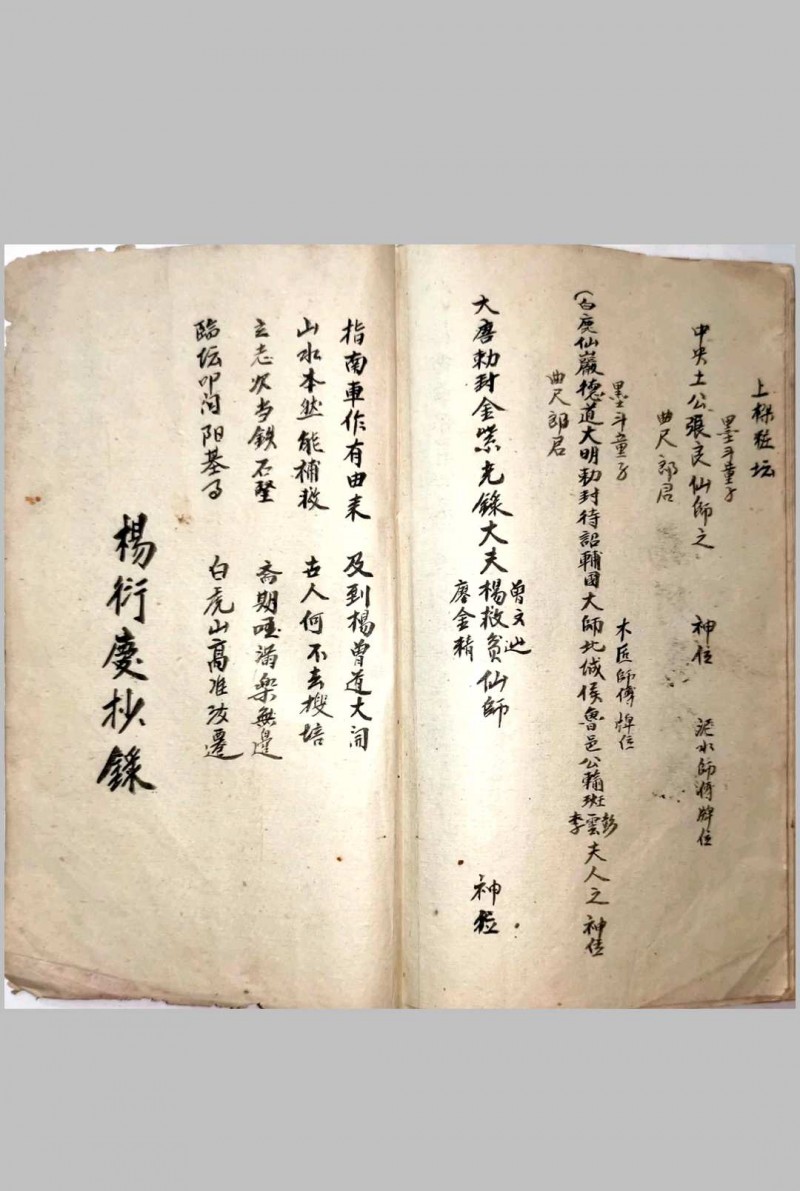 上樑莊坛
墨斗童子
中央土公張良仙師之 神位 泥水師傅牌位
曲尺郎君
墨斗童子 木匠師傅牌位
(白鹿仙巖德道大明勅封待詔輔國大師北城侯魯邑公輸班雲夫人之神位
彭
李
曲尺郎君
曾文辿
大唐勅封金紫光錄大夫楊救貧仙師 神位
廖金精
指南車作有由来 及到楊曾道大開
山水本然能補救 古人何不去搜培
立志次当鉄石堅 斎期 满楽無邊
臨坛叩问阳基事 白虎山高准改遷
楊衍慶抄錄